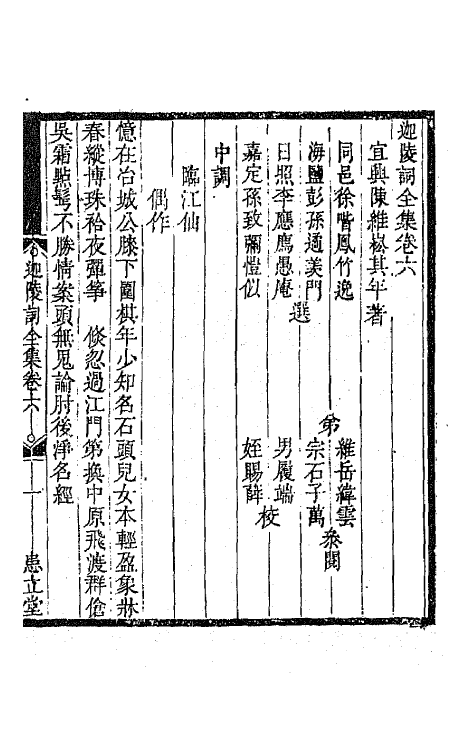 迦陵詞全集卷六
宜興陳維崧其年著
同邑徐喈鳳竹逸
海鹽彭孫遹羡門
日照李應廌愚庵
嘉定孫致彌愷似
選
弟
維岳緯雲
宗石子萬
叅閱
男履端
姪賜薛
校
中調
臨江仙
偶作
憶在冶城公膝下圍棋年少知名石頭兒女本輕盈象牀
春縱博珠袷夜彈箏 倏忽過江門第換中原飛渡群傖
吳霜點鬂不勝情案頭無鬼論肘後淨名經
迦陵詞全集卷六
一
患立堂